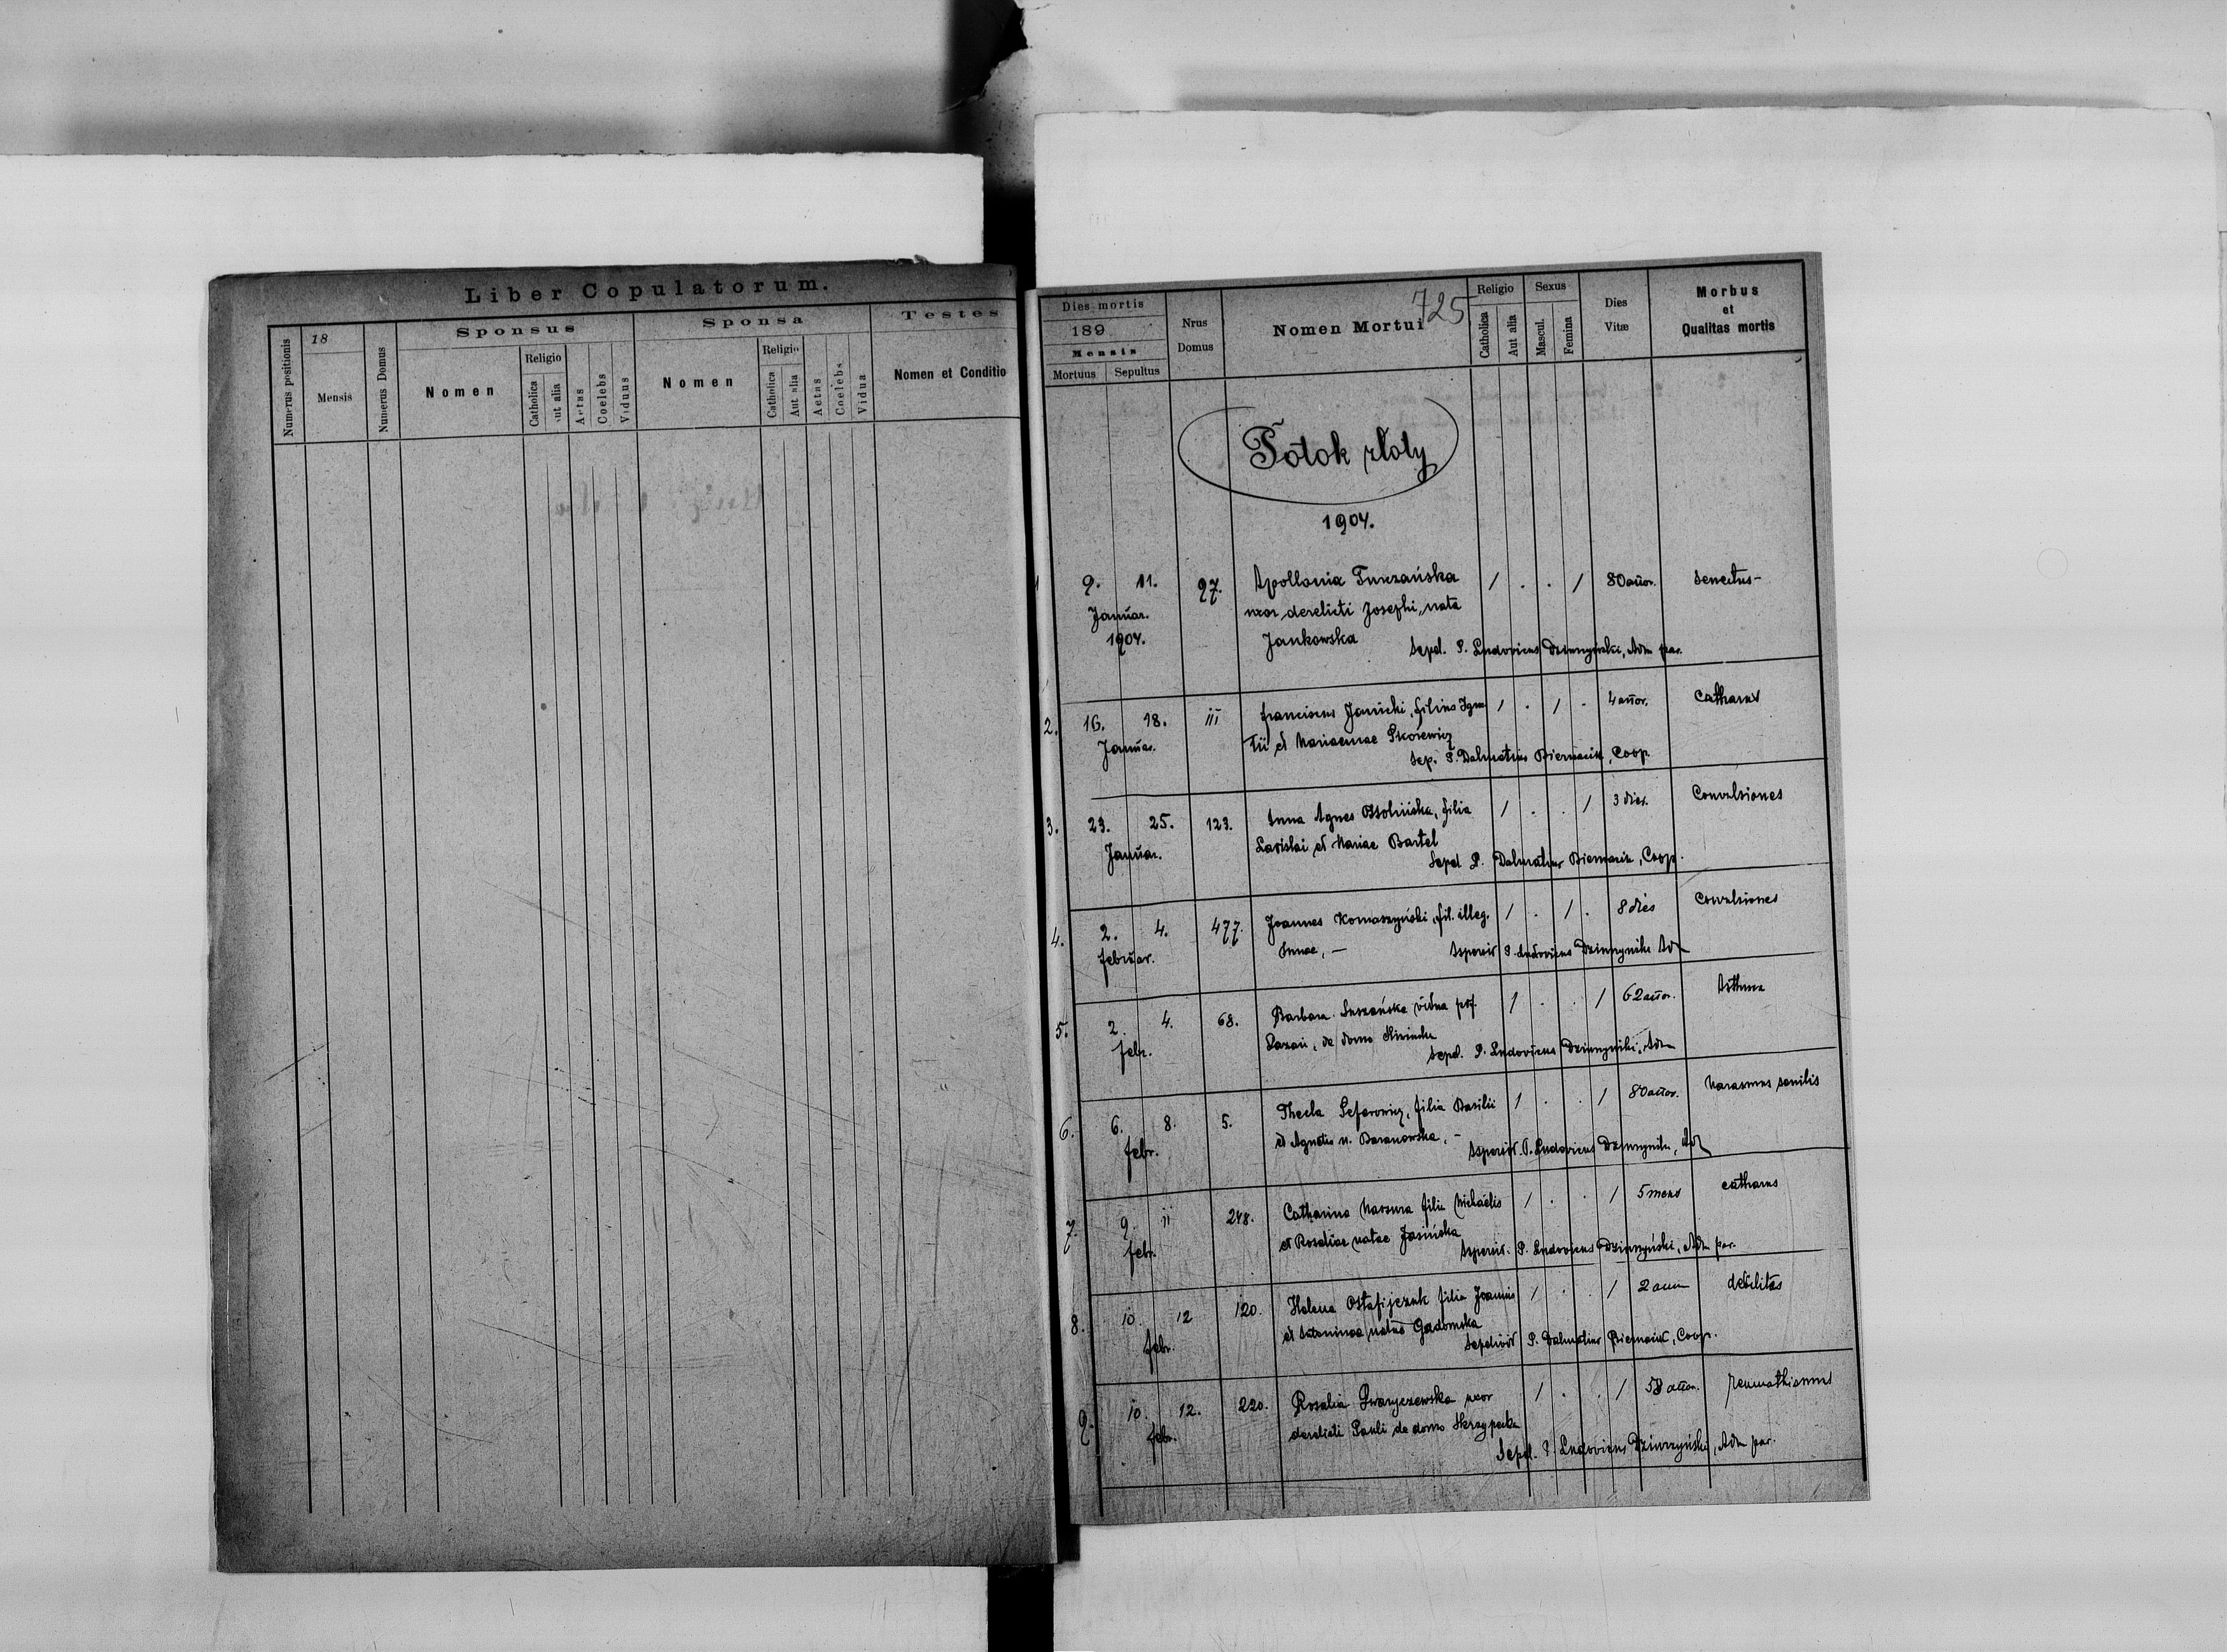 Liber Copulatorum.
Numerus positionis
18
Mensis
Numerus Domus
Sponsus
Nomen
Religio
Catholica
Aut alia
Aetas
Coelebs
Viduus
Sponsa
Nomen
Religio
Catholica
Aut alia
Aetas
Coelebs
Vidua
Testes
Nomen et Conditio
725
Dies mortis
189
Mensis
Mortuus
Sepultus
Nrus
Domus
Nomen Mortui
Religio
Catholica
Aut alia
Sexus
Mascul.
Femina
Dies
Vitæ
Morbus
et
Qualitas mortis
Potok złoty
1904.
1 9. 11. 27. Apollonia Turzańska / . . / 80 annor. Senectus-
Januar. uxor derelicti Josephi, nata
1904. Jankowska
Sepel. P. Ludovicus Adm par.
2. 16. 18. 111 Franciscus Janicki, filius Igna / . / . 4 annor. Catharus
Januar. tii et Mariannae
Sep. P. Dalmatius Biernacik, Coop.
3. 23. 25. 123. Anna Agnes Ossolińska, filia / . . / 3 dies. Convulsiones
Januar. et Mariae Bartel
Sepel P. Dalmatius Biernacik, Coop.
4. 2. 4. 477. Joannes Komaszyński, fil. illeg. / . / . 8 dies Convulsiones
Februar. Annae, —
Asperavit P. Ludovicus Adm
5. 2. 4. 68. Barbara vidua post / . . / 62 annor. Asthma
febr. de domo
Sepel. P. Ludovicus Adm
6. 6. 8. 5. Thecla Seferowicz, filia Basilii / . . / 80 annor. Marasmus senilis
febr. et Agnetis n. Baranowska, -
Aspersit P. Ludovicus Adm
7. 9. 11 248. Catharina filia Michaëlis / . . / 5 mens catharus
febr. et Rosaliae natae Jasińska
Aspersit. P. Ludovicus Adm par.
8. 10. 12 120. Helena Ostafijczuk filia Joannis / . . / 2 ann debilitas
febr. et Antoninae natae Gadomska
Sepelivit P. Dalmatius Biernacik, Coop.
9. 10. 12. 220. Rosalia uxor / . . / 58 annor. reumathismus
febr. derelicti Pauli de domo
Sepel. P. Ludovicus Adm par.